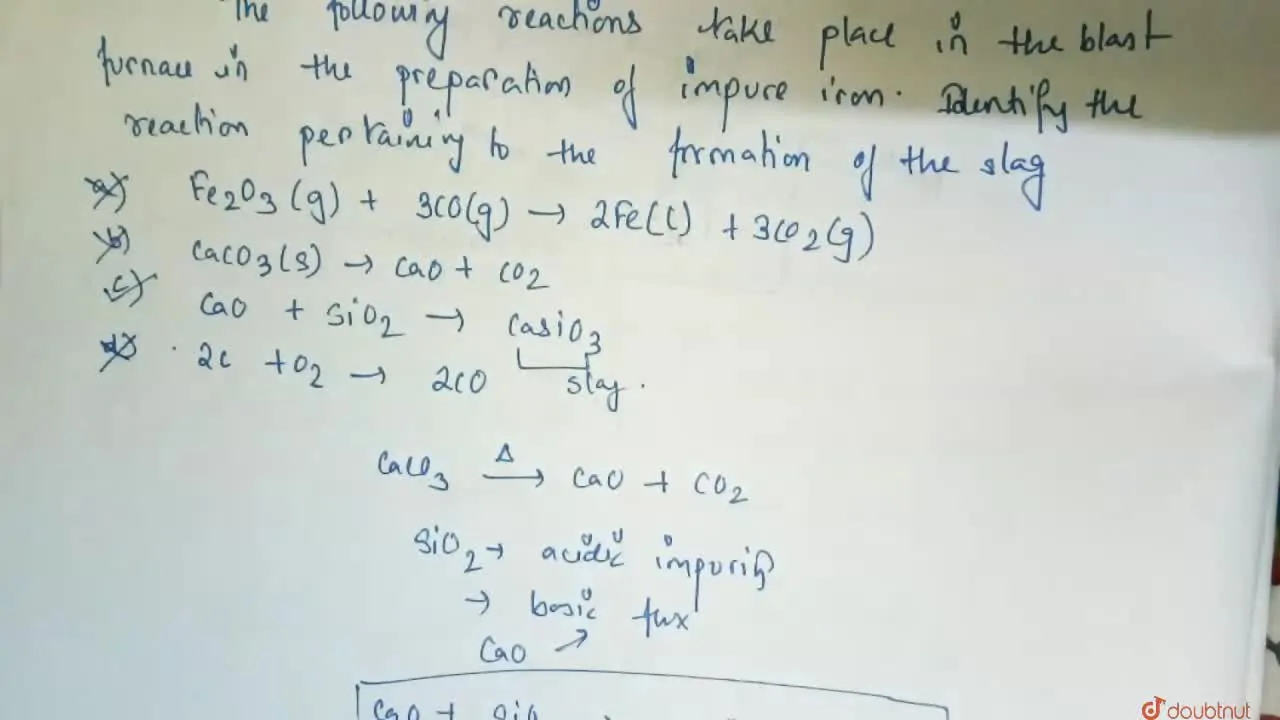 The following reactions take place in the blast
furnace in the preparation of impure iron. Identify the
reaction pertaining to the formation of the slag
a) Fe2O3(g) + 3CO(g) → 2Fe(l) + 3CO2(g)
b) CaCO3(s) → CaO + CO2
c) CaO + SiO2 → CaSiO3
d) 2C + O2 → 2CO slag.
CaCO3 Δ→ CaO + CO2
SiO2 → acidic impurity
→ basic flux
CaO ↗
CaO +
doubtnut